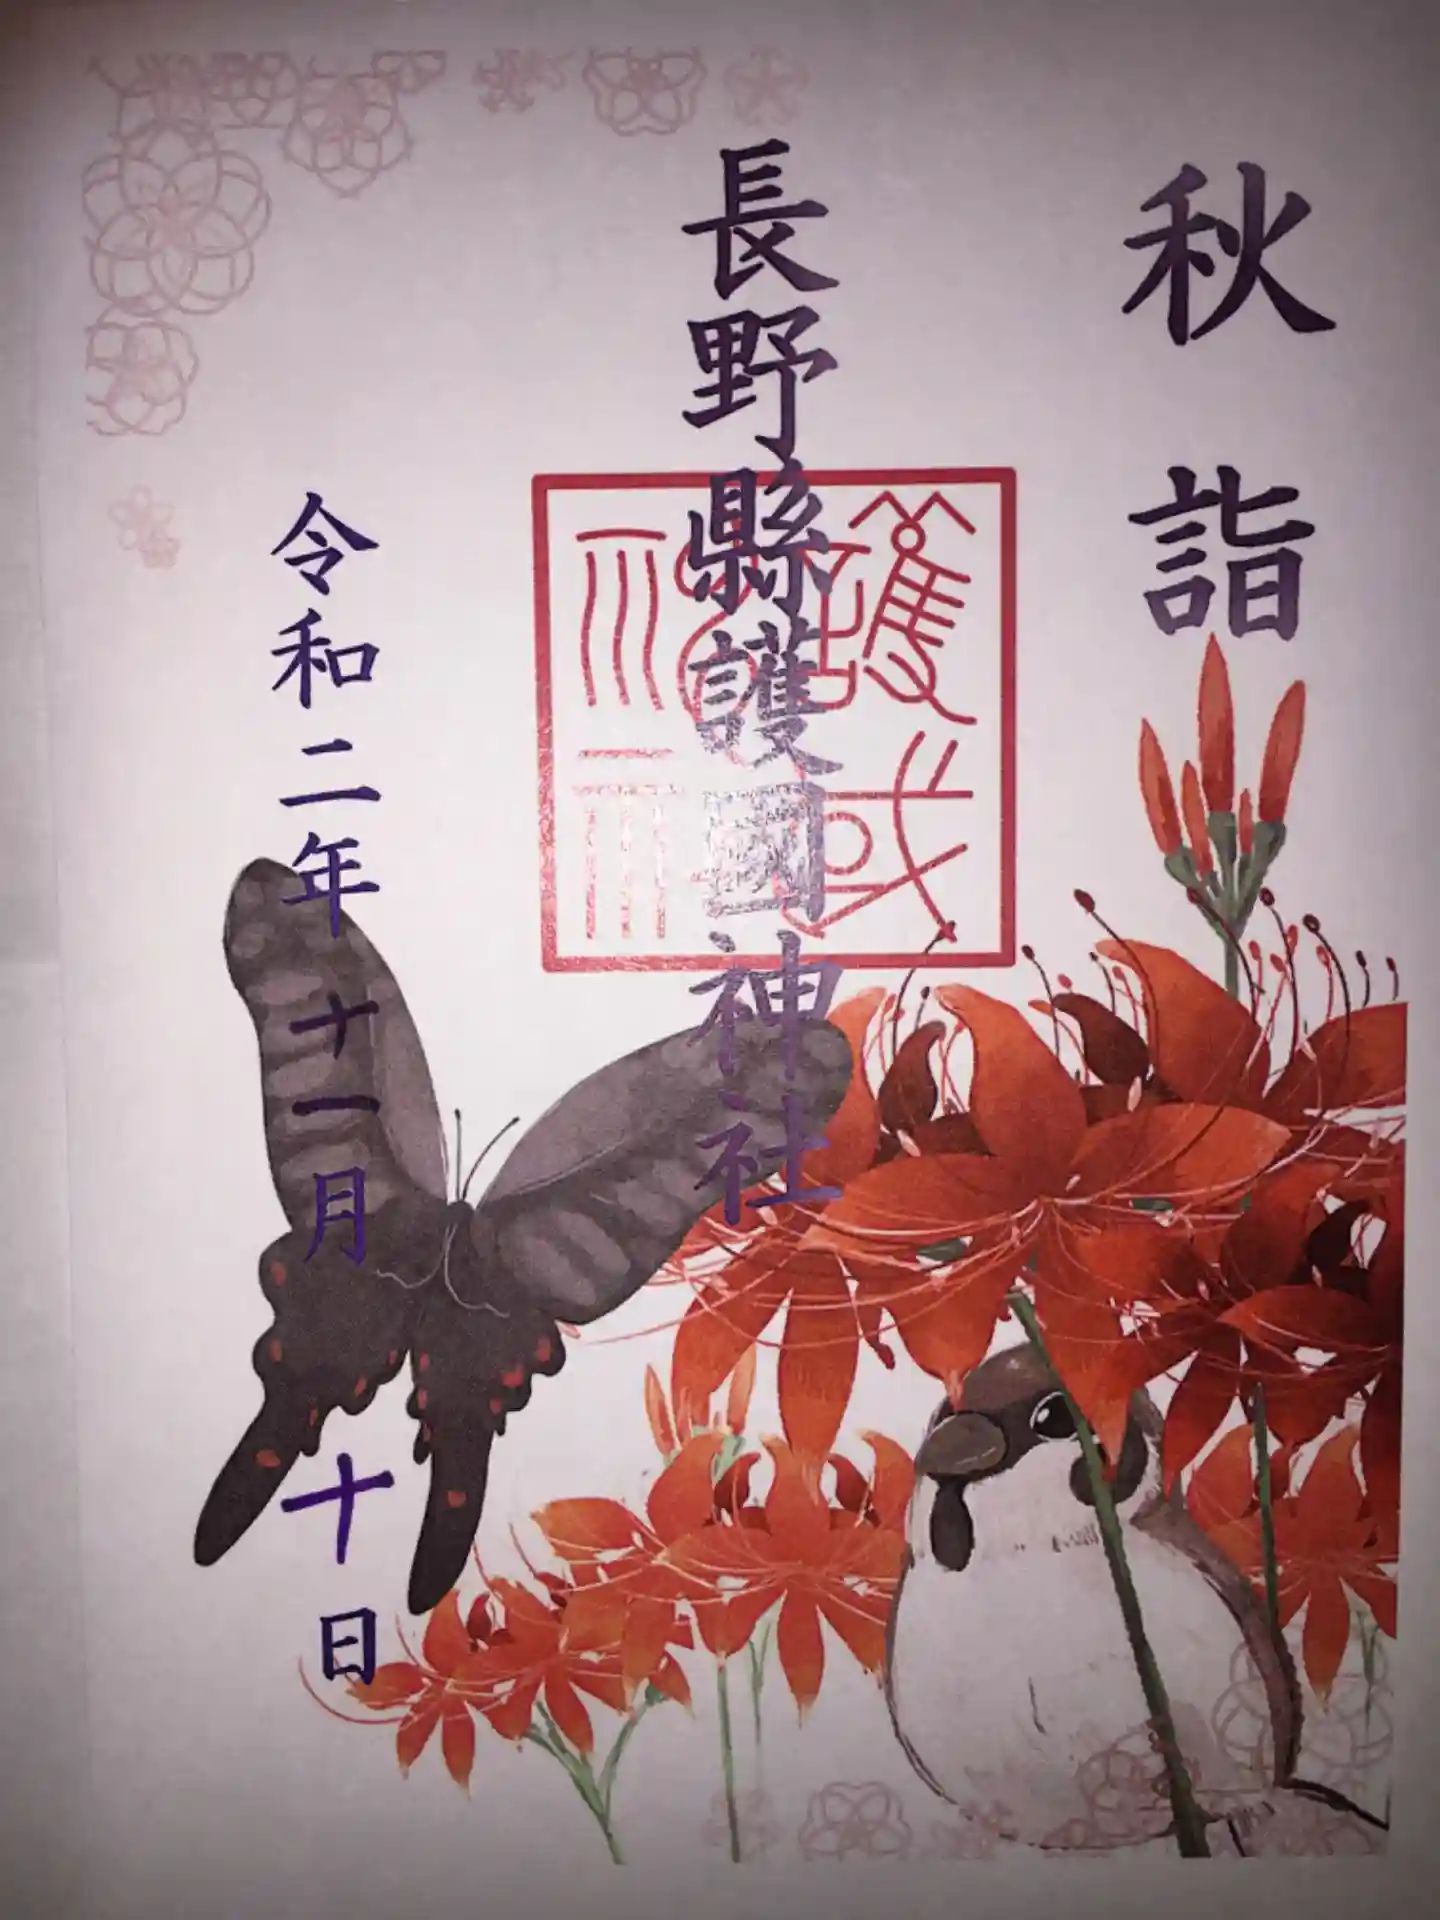 秋詣
長野縣護國神社
令和二年十一月十日